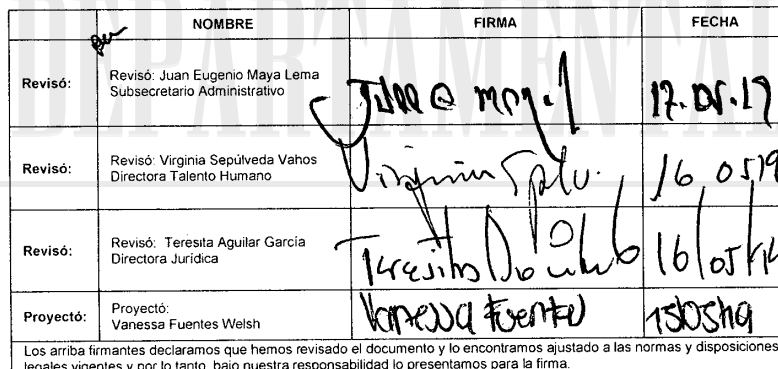 DEPARTAMENTAL
NOMBRE FIRMA FECHA
Revisó: Revisó: Juan Eugenio Maya Lema
Subsecretario Administrativo 17.05.19
Revisó: Revisó: Virginia Sepúlveda Vahos
Directora Talento Humano Virginia 16 0519
Revisó: Revisó: Teresita Aguilar García
Directora Jurídica Teresita 16/05/19
Proyectó: Proyectó:
Vanessa Fuentes Welsh Vanessa Fuentes 15/05/19
Los arriba firmantes declaramos que hemos revisado el documento y lo encontramos ajustado a las normas y disposiciones
legales vigentes y por lo tanto, bajo nuestra responsabilidad lo presentamos para la firma.